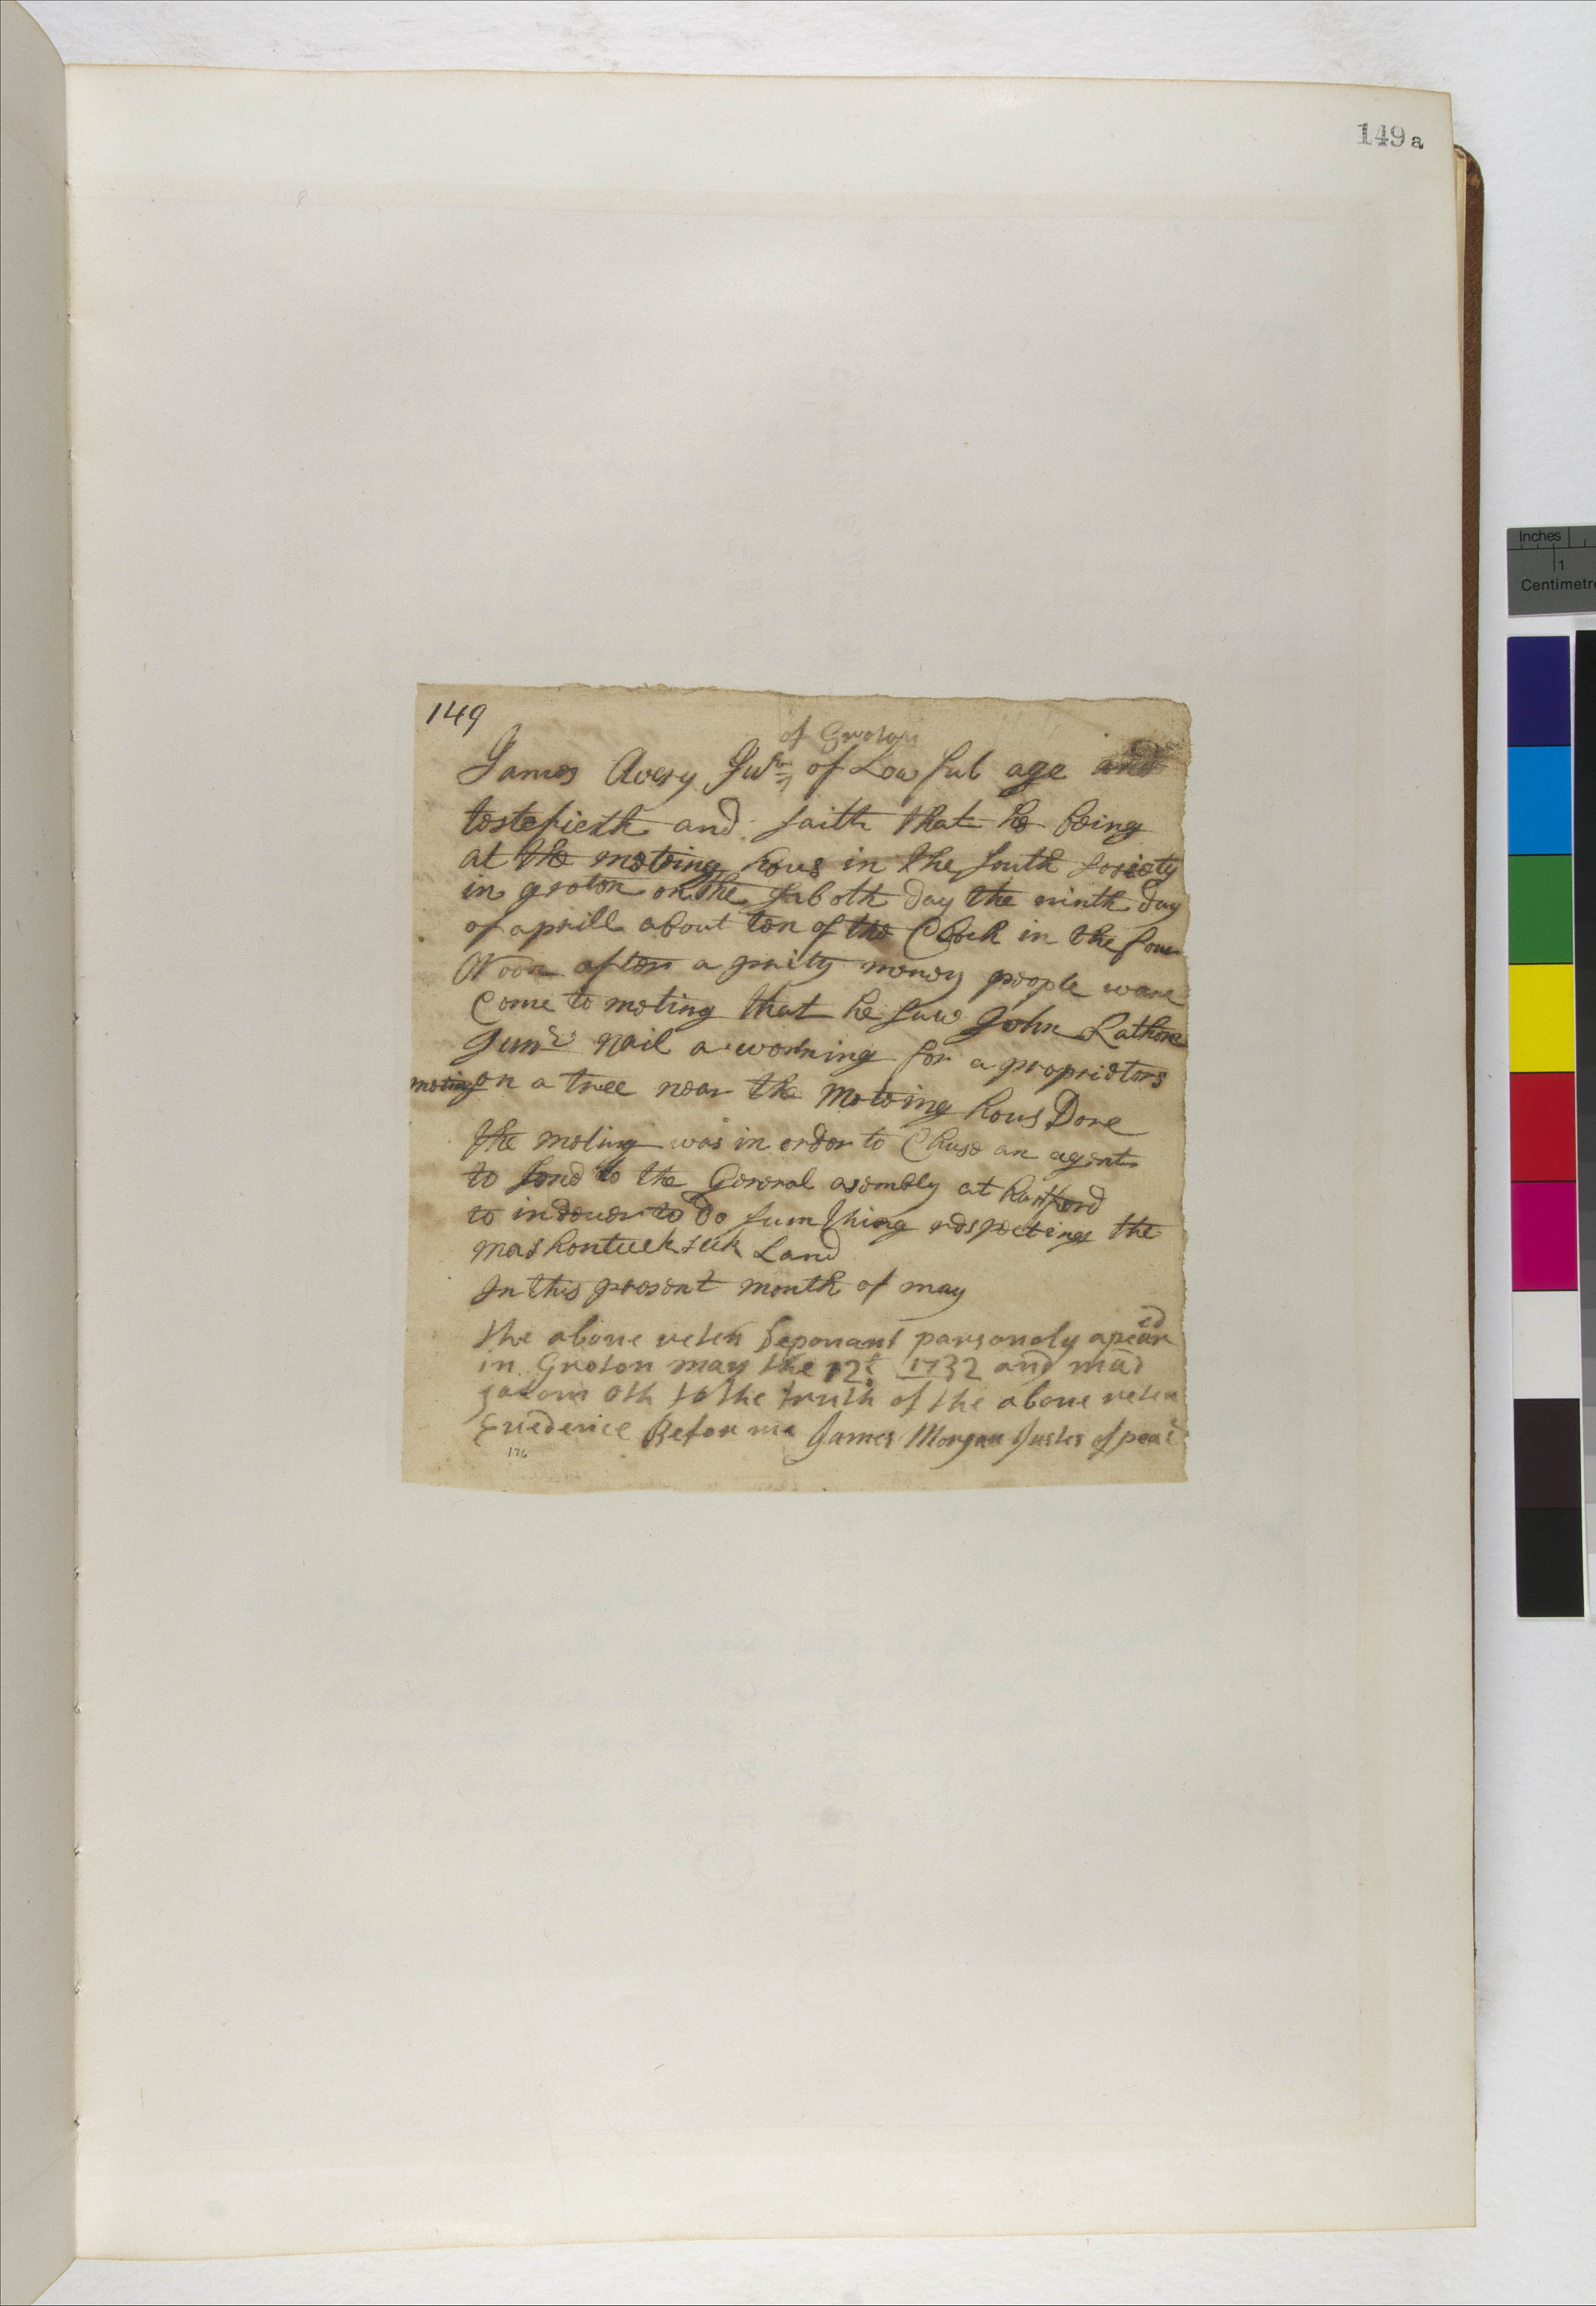 149 a
149
of Groton
James Avery Junr of Lowful age and
testefieth and saith that he being
at the meteing hous in the south sosiety
in groton on the saboth day the ninth day
of aprill about ten of the Clock in the fore
Noon after a prity meney people ware
Come to meting that he saw John Rathbone
Junr nail a worning for a proprietors
meting on a tree near the Meteing hous Dore
the meting was in order to Chuse an agent
to send to the General asembly at hartford
to indever to do sum thing respecting the
mashontuck suk Land
In this present month of may
the above reten Deponant parsonaly apeared
in Groton may the 12t 1732 and mad
solom oth to the truth of the above reten
Evedence Before me James Morgan Justes of peac
176
Inches
1
Centimetre